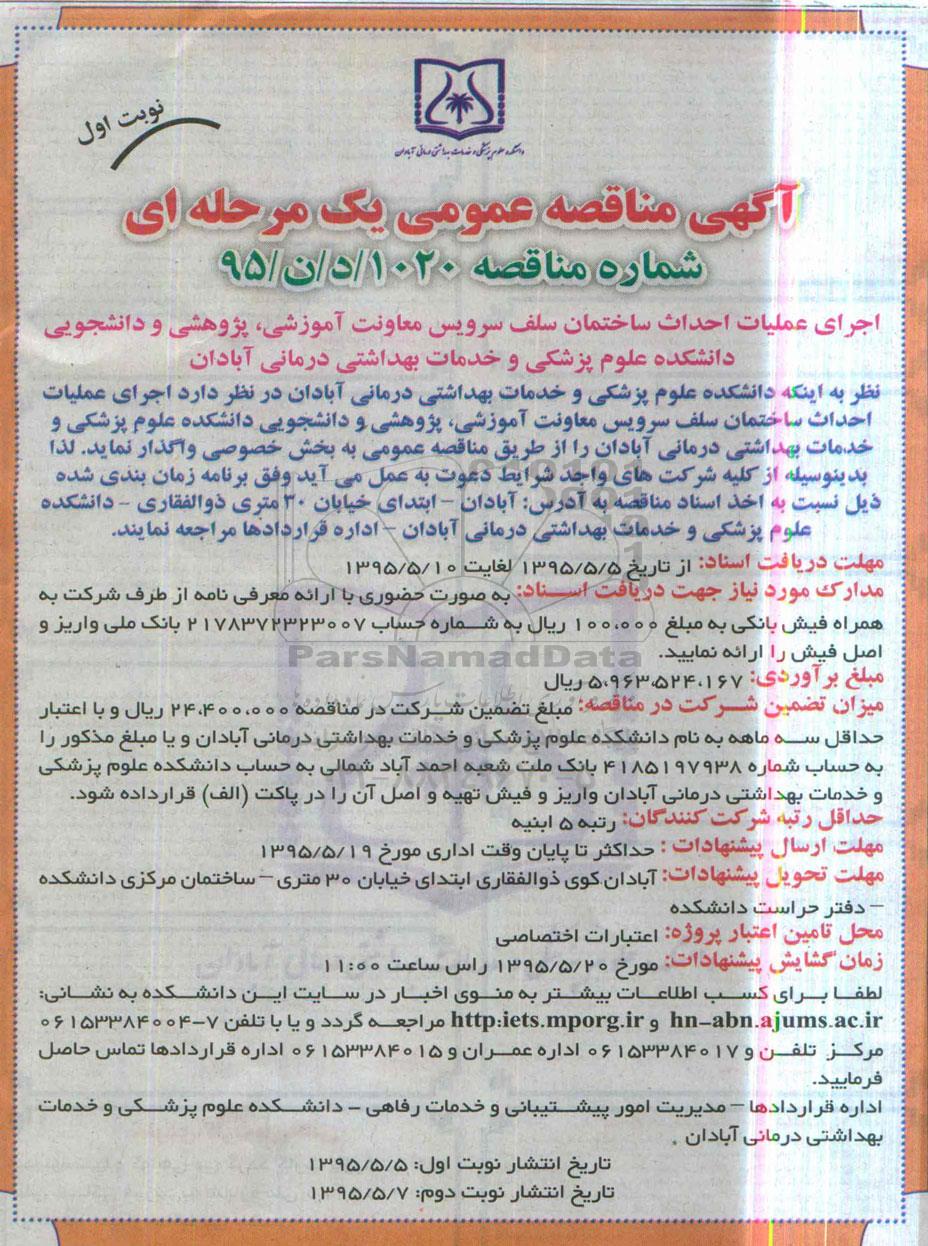 نوبت اول
دانشکده علوم پزشکی و خدمات بهداشتی درمانی آبادان
آگهی مناقصه عمومی یک مرحله ای
شماره مناقصه ۱۰۲۰/د/ن/۹۵
اجرای عملیات احداث ساختمان سلف سرویس معاونت آموزشی، پژوهشی و دانشجویی
دانشکده علوم پزشکی و خدمات بهداشتی درمانی آبادان
نظر به اینکه دانشکده علوم پزشکی و خدمات بهداشتی درمانی آبادان در نظر دارد اجرای عملیات
احداث ساختمان سلف سرویس معاونت آموزشی، پژوهشی و دانشجویی دانشکده علوم پزشکی و
خدمات بهداشتی درمانی آبادان را از طریق مناقصه عمومی به بخش خصوصی واگذار نماید. لذا
بدینوسیله از کلیه شرکت های واجد شرایط دعوت به عمل می آید وفق برنامه زمان بندی شده
ذیل نسبت به اخذ اسناد مناقصه به آدرس: آبادان – ابتدای خیابان ۳۰ متری ذوالفقاری – دانشکده
علوم پزشکی و خدمات بهداشتی درمانی آبادان – اداره قراردادها مراجعه نمایند.
مهلت دریافت اسناد: از تاریخ ۱۳۹۵/۵/۵ لغایت ۱۳۹۵/۵/۱۰
مدارک مورد نیاز جهت دریافت اسناد: به صورت حضوری با ارائه معرفی نامه از طرف شرکت به
همراه فیش بانکی به مبلغ ۱۰۰،۰۰۰ ریال به شماره حساب ۲۱۷۸۳۷۲۳۲۳۰۰۷ بانک ملی واریز و
اصل فیش را ارائه نمایید.
ParsNamadData
مبلغ برآوردی: ۵،۹۶۳،۵۲۴،۱۶۷ ریال
میزان تضمین شرکت در مناقصه: مبلغ تضمین شرکت در مناقصه ۲۴،۴۰۰،۰۰۰ ریال و با اعتبار
حداقل سه ماهه به نام دانشکده علوم پزشکی و خدمات بهداشتی درمانی آبادان و یا مبلغ مذکور را
به حساب شماره ۴۱۸۵۱۹۷۹۳۸ بانک ملت شعبه احمد آباد شمالی به حساب دانشکده علوم پزشکی
و خدمات بهداشتی درمانی آبادان واریز و فیش تهیه و اصل آن را در پاکت (الف) قرارداده شود.
حداقل رتبه شرکت کنندگان: رتبه ۵ ابنیه
مهلت ارسال پیشنهادات : حداکثر تا پایان وقت اداری مورخ ۱۳۹۵/۵/۱۹
مهلت تحویل پیشنهادات: آبادان.کوی ذوالفقاری ابتدای خیابان ۳۰ متری – ساختمان مرکزی دانشکده
– دفتر حراست دانشکده
محل تامین اعتبار پروژه: اعتبارات اختصاصی
زمان گشایش پیشنهادات: مورخ ۱۳۹۵/۵/۲۰ راس ساعت ۱۱:۰۰
لطفا برای کسب اطلاعات بیشتر به منوی اخبار در سایت این دانشکده به نشانی:
hn-abn.ajums.ac.ir و http:iets.mporg.ir مراجعه گردد و یا با تلفن ۷-۰۶۱۵۳۳۸۴۰۰۴
مرکز تلفن و ۰۶۱۵۳۳۸۴۰۱۷ اداره عمران و ۰۶۱۵۳۳۸۴۰۱۵ اداره قراردادها تماس حاصل
فرمایید.
اداره قراردادها – مدیریت امور پیشتیبانی و خدمات رفاهی – دانشکده علوم پزشکی و خدمات
بهداشتی درمانی آبادان .
تاریخ انتشار نوبت اول: ۱۳۹۵/۵/۵
تاریخ انتشار نوبت دوم: ۱۳۹۵/۵/۷